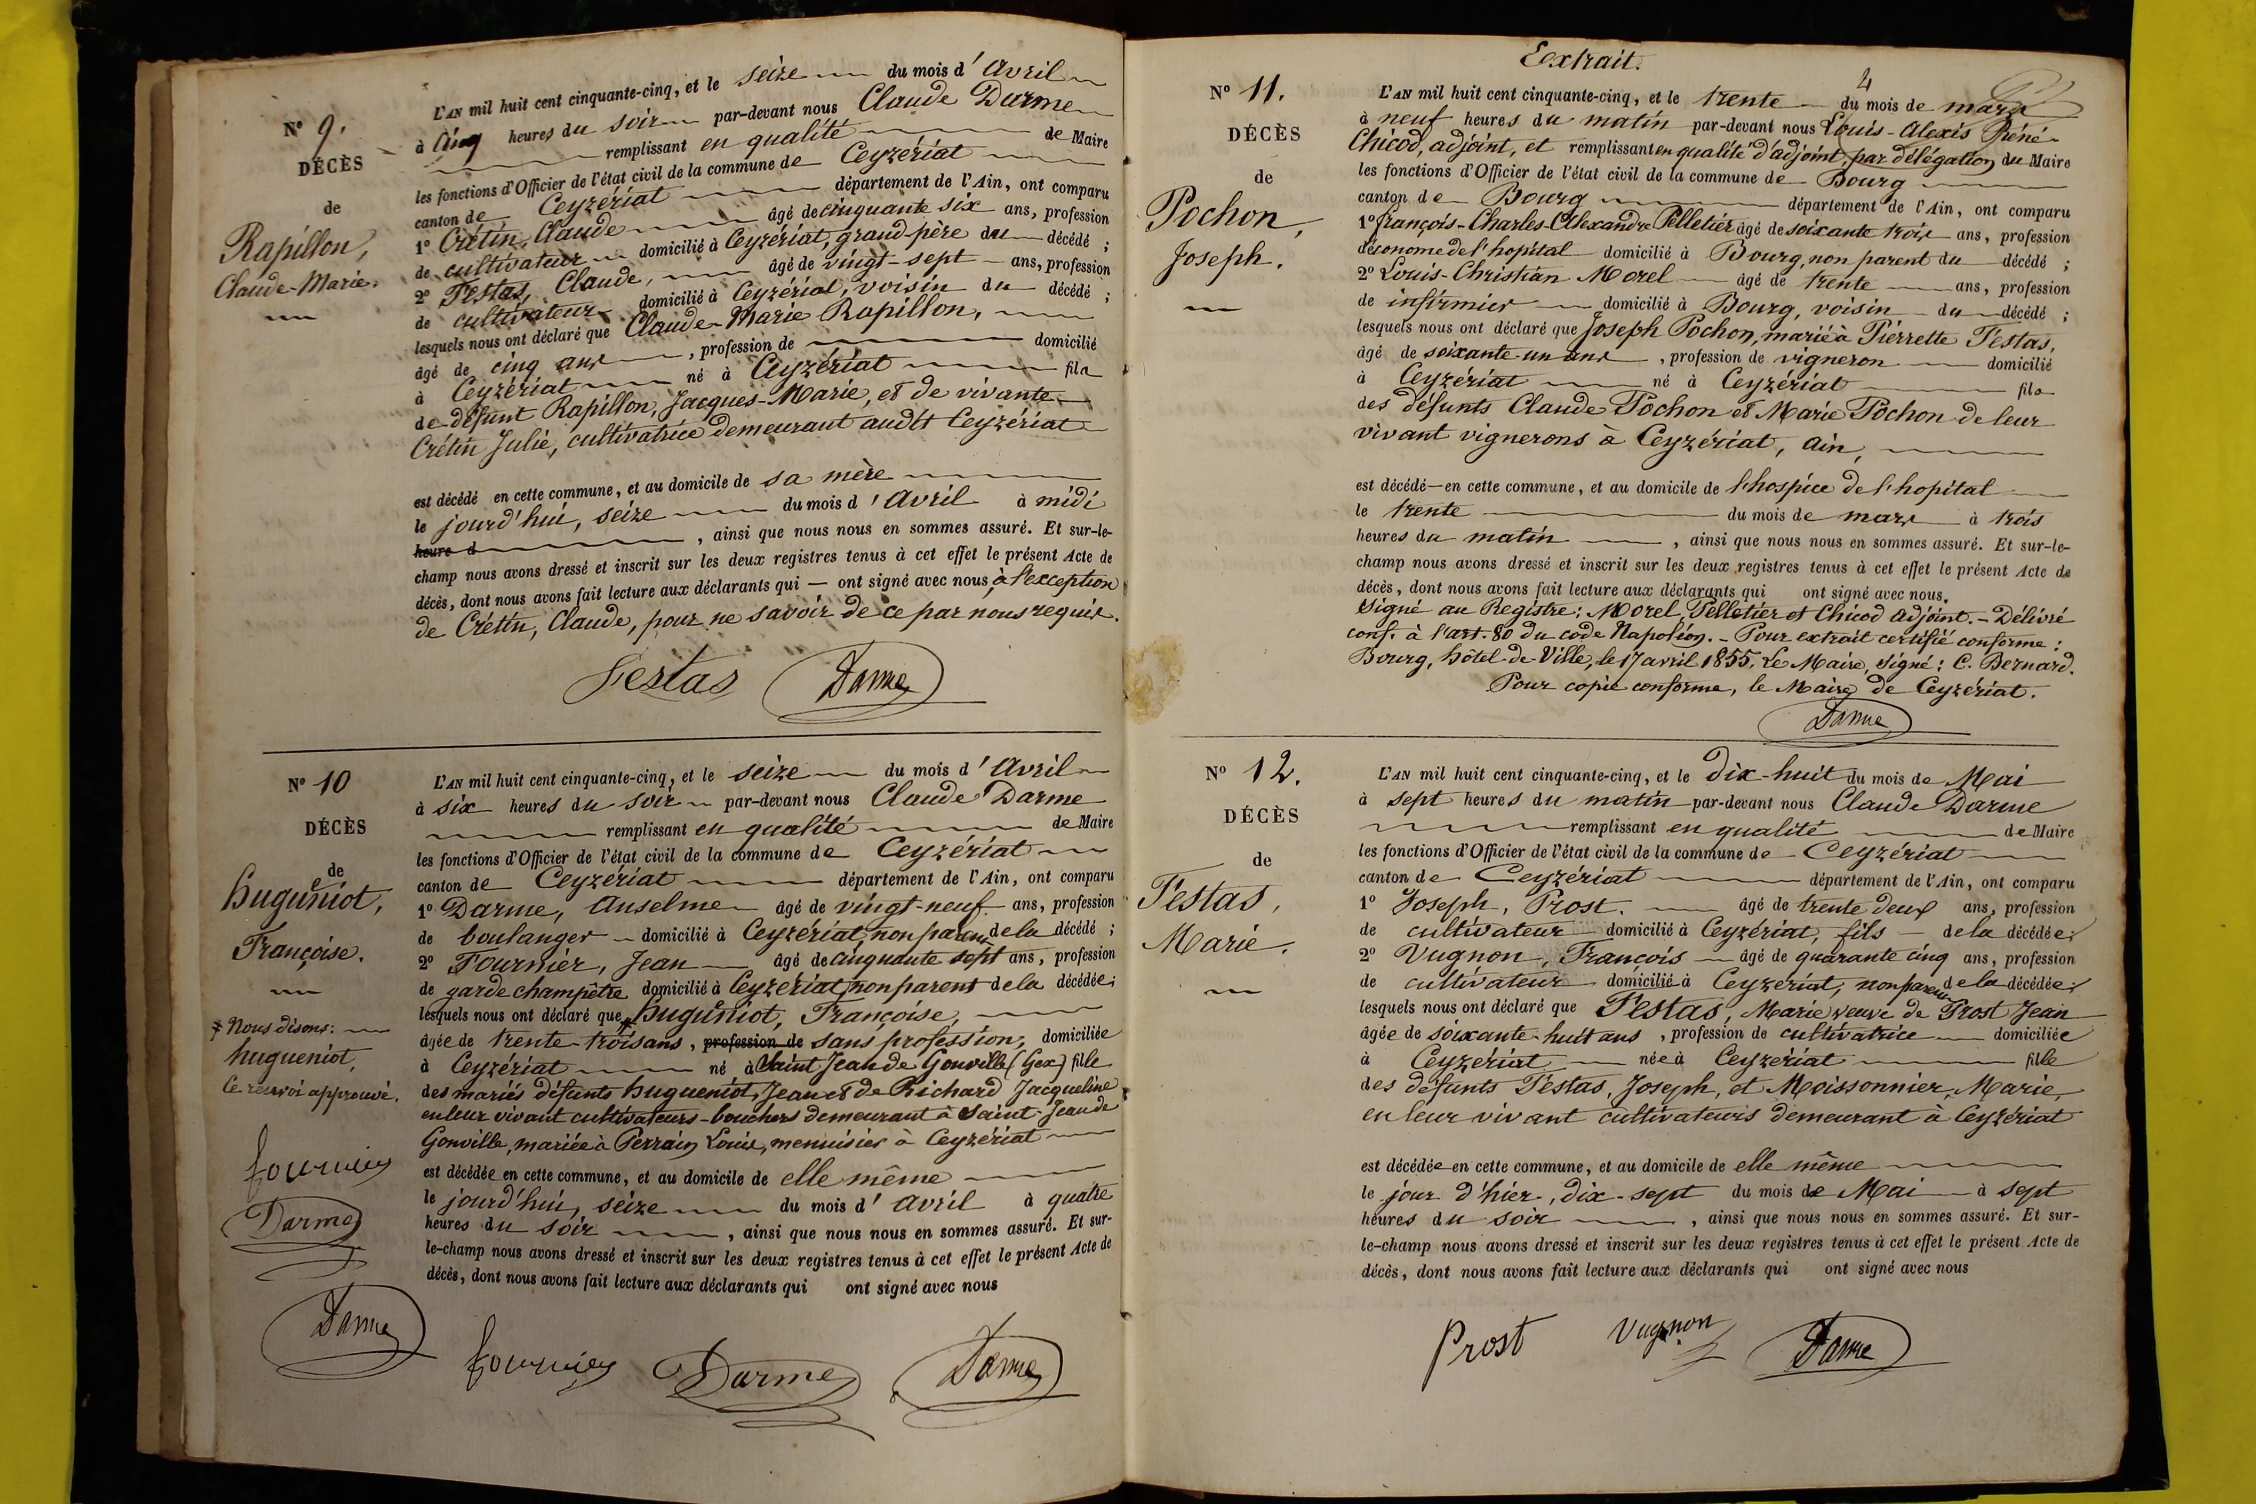 N° 9.
DÉCÈS
de
Rapillon,
Claude-Marie.
L'AN mil huit cent cinquante-cinq, et le seize du mois d'Avril
à cinq heures du soir par-devant nous Claude Darme
remplissant en qualité de Maire
les fonctions d'Officier de l'état civil de la commune de Ceyzériat
canton de Ceyzériat département de l'Ain, ont comparu
1° Crétin, Claude âgé de cinquante six ans, profession
de cultivateur domicilié à Ceyzériat, grand-père du décédé ;
2° Festas, Claude, âgé de vingt-sept ans, profession
de cultivateur domicilié à Ceyzériat, voisin du décédé ;
lesquels nous ont déclaré que Claude-Marie Rapillon,
âgé de cinq ans , profession de domicilié
à Ceyzériat né à Ceyzériat fils
de défunt Rapillon, Jacques-Marie, et de vivante
Crétin Julie, cultivatrice demeurant audit Ceyzériat
est décédé en cette commune, et au domicile de sa mère
le jourd'hui, seize du mois d'Avril à midi
heure d , ainsi que nous nous en sommes assuré. Et sur-le-
champ nous avons dressé et inscrit sur les deux registres tenus à cet effet le présent Acte de
décès, dont nous avons fait lecture aux déclarants qui — ont signé avec nous, à l'exception
de Crétin, Claude, pour ne savoir de ce par nous requis.
Festas Darme
N° 10
DÉCÈS
de
Hugueniot,
Françoise.
Nous disons :
hugueniot,
Ce renvoi approuvé.
fournier
Darme
Darme
L'AN mil huit cent cinquante-cinq, et le seize du mois d'Avril
à six heures du soir par-devant nous Claude Darme
remplissant en qualité de Maire
les fonctions d'Officier de l'état civil de la commune de Ceyzériat
canton de Ceyzériat département de l'Ain, ont comparu
1° Darme, Anselme âgé de vingt-neuf ans, profession
de boulanger domicilié à Ceyzériat, non parent de la décédé ;
2° Fournier, Jean âgé de cinquante sept ans, profession
de garde champêtre domicilié à Ceyzériat, non parent de la décédée ;
lesquels nous ont déclaré que Hugueniot, Françoise,
âgée de trente-trois ans, profession de sans profession, domiciliée
à Ceyzériat né à Saint Jean de Gonville (Gex) fille
des mariés défunts hugueniot, Jean et de Richard Jacqueline
en leur vivant cultivateurs-bouchers demeurant à Saint-Jean de
Gonville, mariée à Perrain Louis, menuisier à Ceyzériat
est décédée en cette commune, et au domicile de elle même
le jourd'hui, seize du mois d'Avril à quatre
heures du soir , ainsi que nous nous en sommes assuré. Et sur-
le-champ nous avons dressé et inscrit sur les deux registres tenus à cet effet le présent Acte de
décès, dont nous avons fait lecture aux déclarants qui ont signé avec nous
fournier Darme Darme
Extrait.
4
N° 11.
DÉCÈS
de
Pochon,
Joseph.
L'AN mil huit cent cinquante-cinq, et le trente du mois de mars
à neuf heures du matin par-devant nous Louis-Alexis Réné
Chicod, adjoint, et remplissant en qualité d'adjoint, par délégation du Maire
les fonctions d'Officier de l'état civil de la commune de Bourg
canton de Bourg département de l'Ain, ont comparu
1° françois-Charles-Alexandre Pelletier âgé de soixante trois ans, profession
d'économe de l'hopital domicilié à Bourg, non parent du décédé ;
2° Louis-Christian Morel âgé de trente ans, profession
de infirmier domicilié à Bourg, voisin du décédé ;
lesquels nous ont déclaré que Joseph Pochon, marié à Pierrette Festas,
âgé de soixante-un ans , profession de vigneron domicilié
à Ceyzériat né à Ceyzériat fils
des défunts Claude Pochon et Marie Pochon de leur
vivant vignerons à Ceyzériat, ain,
est décédé — en cette commune, et au domicile de l'hospice de l'hopital
le trente du mois de mars à trois
heures du matin , ainsi que nous nous en sommes assuré. Et sur-le-
champ nous avons dressé et inscrit sur les deux registres tenus à cet effet le présent Acte de
décès, dont nous avons fait lecture aux déclarants qui ont signé avec nous.
signé au Registre : Morel, Pelletier et Chicod adjoint. – Délivré
conf. à l'art. 80 du code Napoléon. – Pour extrait certifié conforme :
Bourg, hôtel-de-Ville, le 17 avril 1855. Le Maire, signé : C. Bernard.
Pour copie conforme, le Maire de Ceyzériat.
Darme
N° 12.
DÉCÈS
de
Festas,
Marie.
L'AN mil huit cent cinquante-cinq, et le dix-huit du mois de Mai
à sept heures du matin par-devant nous Claude Darme
remplissant en qualité de Maire
les fonctions d'Officier de l'état civil de la commune de Ceyzériat
canton de Ceyzériat département de l'Ain, ont comparu
1° Joseph, Prost. âgé de trente deux ans, profession
de cultivateur domicilié à Ceyzériat, fils de la décédée ;
2° Vugnon, François âgé de quarante cinq ans, profession
de cultivateur domicilié à Ceyzériat, non parent de la décédée ;
lesquels nous ont déclaré que Festas, Marie veuve de Prost Jean
âgée de soixante-huit ans , profession de cultivatrice domiciliée
à Ceyzériat née à Ceyzériat fille
des défunts Festas, Joseph, et Moissonnier, Marie,
en leur vivant cultivateurs demeurant à Ceyzériat
est décédée en cette commune, et au domicile de elle même
le jour d'hier, dix-sept du mois de Mai à sept
heures du soir , ainsi que nous nous en sommes assuré. Et sur-
le-champ nous avons dressé et inscrit sur les deux registres tenus à cet effet le présent Acte de
décès, dont nous avons fait lecture aux déclarants qui ont signé avec nous
Prost Vugnon Darme